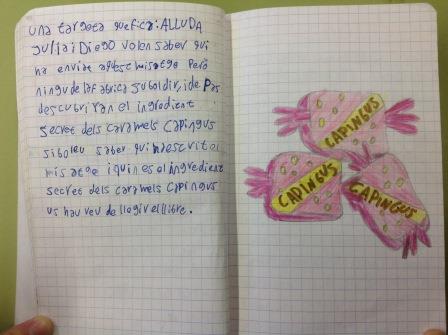 una targeta que fica: ALLUDA
Julia i Diego volen saber qui
ha enviat aquest misatge Però
ningú de la fabrica su vol dir, i de Pas
descubriran el ingredient
secret dels caramels Capingus
si boleu saber qui ha escrit el
misatge i quin es el ingredient
secret dels caramels Capingus
us hau reu de llegir el llibre.
CAPINGUS
CAPINGUS
CAPINGUS